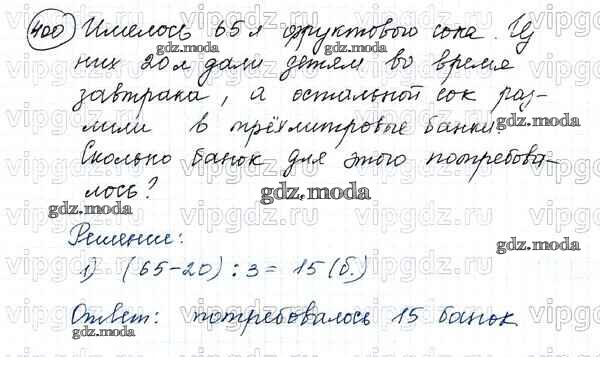 400 Имелось 65 л фруктового сока. Из
них 20 л дали детям во время
завтрака, а остальной сок раз-
лили в трёхлитровые банки.
Сколько банок для этого потребова-
лось?
Решение:
1) (65-20) : 3 = 15 (б.)
Ответ: потребовалось 15 банок
gdz.moda
vipgdz